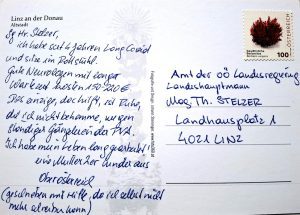 Linz an der Donau
Altstadt
Sg Hr. Stelzer,
ich habe seit 4 Jahren Long Covid
und sitze im Rollstuhl.
Gute Neurologen mit langer
Wartezeit kosten 150-220 €.
Das einzige, das hilft, ist Ruhe,
die ich nicht bekomme, wegen
ständiger Gängelei der PVA.
Ich habe mein Leben lang gearbeitet!
eine Mutter 2er Kinder aus
Oberösterreich
(geschrieben mit Hilfe, da ich selbst nicht
mehr schreiben kann)
ÖSTERREICH
100
Amt der OÖ Landesregierung
Landeshauptmann
Mag. Th. STELZER
Landhausplatz 1
4021 LINZ